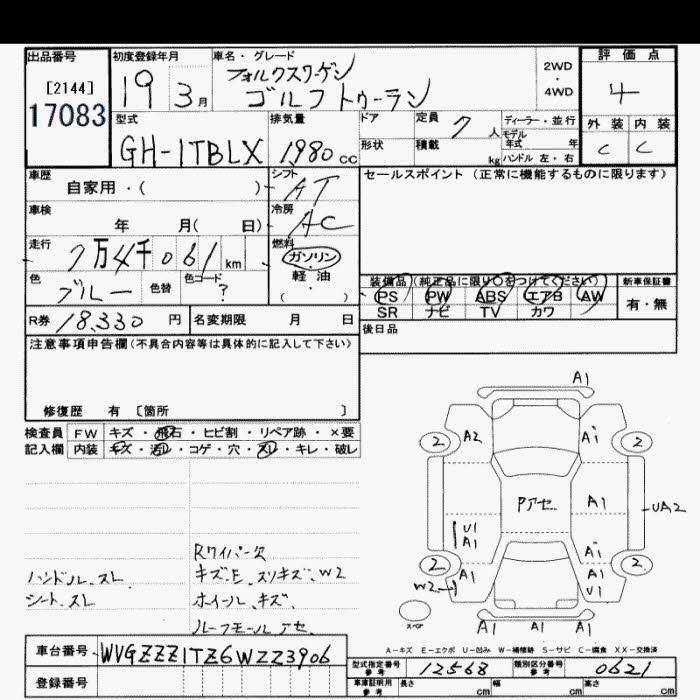 出品番号 初度登録年月 車名・グレード 評価点
[2144] 19 3月 フォルクスワーゲン 2WD・4WD 4
17083 ゴルフトゥーラン
型式 排気量 ドア 定員 7人 ディーラー・並行 外装 内装
GH-1TBLX 1,980 cc 形状 積載 kg モデル年式 年 C C
ハンドル 左・右
車歴 シフト セールスポイント (正常に機能するものに限ります)
自家用・( ) AT
車検 冷房
年 月( 日) AC
走行 燃料
7万4千061 km ガソリン
色 色コード 軽油 装備品 (純正品に限り○をつけてください) 新車保証書
ブルー 色替 ? ( ) PS PW ABS エアB AW 有・無
SR ナビ TV カワ
R券 18,330 円 名変期限 月 日 後日品
注意事項申告欄(不具合内容等は具体的に記入して下さい)
修復歴 有 [箇所 ]
検査員 FW キズ・飛石・ヒビ割・リペア跡・×要
記入欄 内装 キズ・汚レ・コゲ・穴・スレ・キレ・破レ
A1
2 A2 A1 2
Pアセ A1 UA2
U1
A1 A1
2 A1 A1 2
W2 U1
スペア A1 A1 A1
Rワイパー欠
ハンドル.スレ キズ.E.スリキズ.W2
シート.スレ ホイール.キズ.
ルーフモール アセ.
A-キズ E-エクボ U-凹み W-補修跡 S-サビ C-腐食 XX-交換済
車台番号 WVGZZZ1TZ6WZZ3906 型式指定番号 参考 12568 類別区分番号 参考 0621
登録番号 車庫証明用 参考 長さ cm 幅 cm 高さ cm